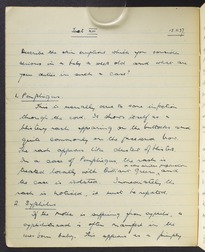 Test XII 15.11.37
Describe the skin eruptions which you consider
serious in a baby a week old and what are
your duties in such a case?
1. Pemphigus.
This is usually due to some infection
through the cord. It shows itself as a
blistery rash appearing on the buttocks and
quite commonly on the face and hands.
The rash appears like clusters of blisters.
In a case of Pemphigus the rash is
treated locally with Brilliant Green, and
the case is isolated. Immediately the
rash is noticed, it must be reported.
2. Syphilis
If the mother is suffering from syphilis, a
syphilitic rash is often manifest in the
new born baby. This appears as a pimply